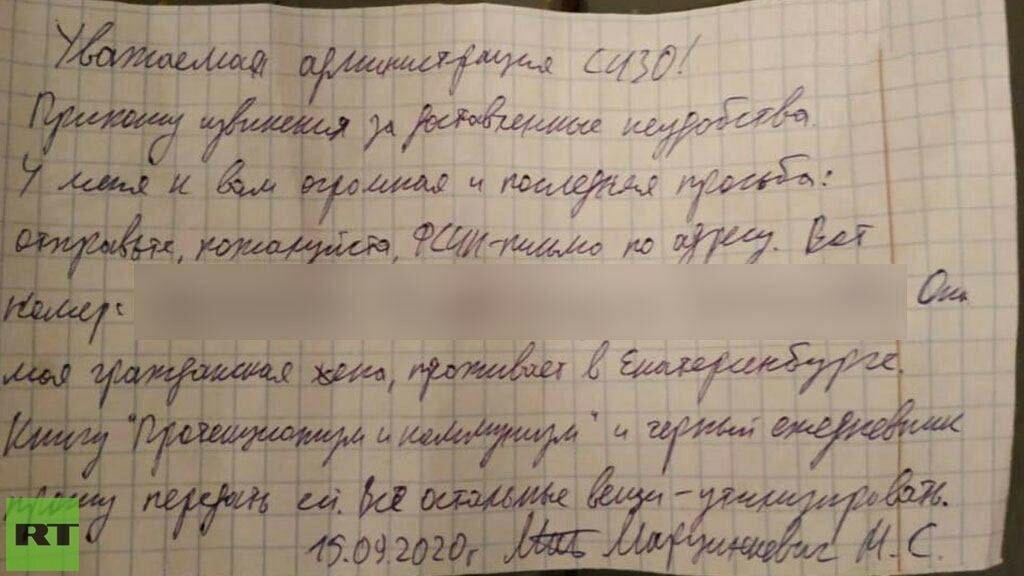 Уважаемая администрация СИЗО!
Приношу извинения за доставленные неудобства.
У меня к вам огромная и последняя просьба:
отправьте, пожалуйста, ФСИН-письмо по адресу. Вот
номер: Она
моя гражданская жена, проживает в Екатеринбурге.
Книгу "Протекционизм и коммунизм" и черный ежедневник
прошу передать ей. Всё остальные вещи - утилизировать.
15.09.2020г Марцинкевич М. С.
RT